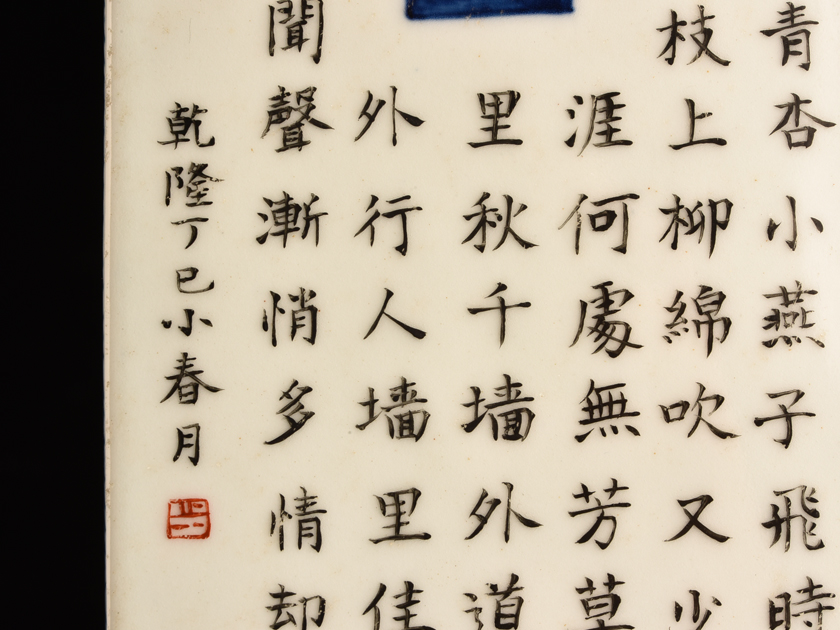 青杏小燕子飛時
枝上柳綿吹又少
涯何處無芳草
里秋千墙外道
外行人墙里佳
聞聲漸悄多情却
乾隆丁巳小春月